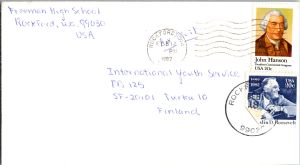 Freeman High School
Rockford, WA 99030
USA
ROCKFORD
1982
John Hanson
President Continental Congress
USA 20c
International Youth Service
PB 125
SF-20101 Turku 10
Finland
USA 20c
Franklin D. Roosevelt
ROCKFORD